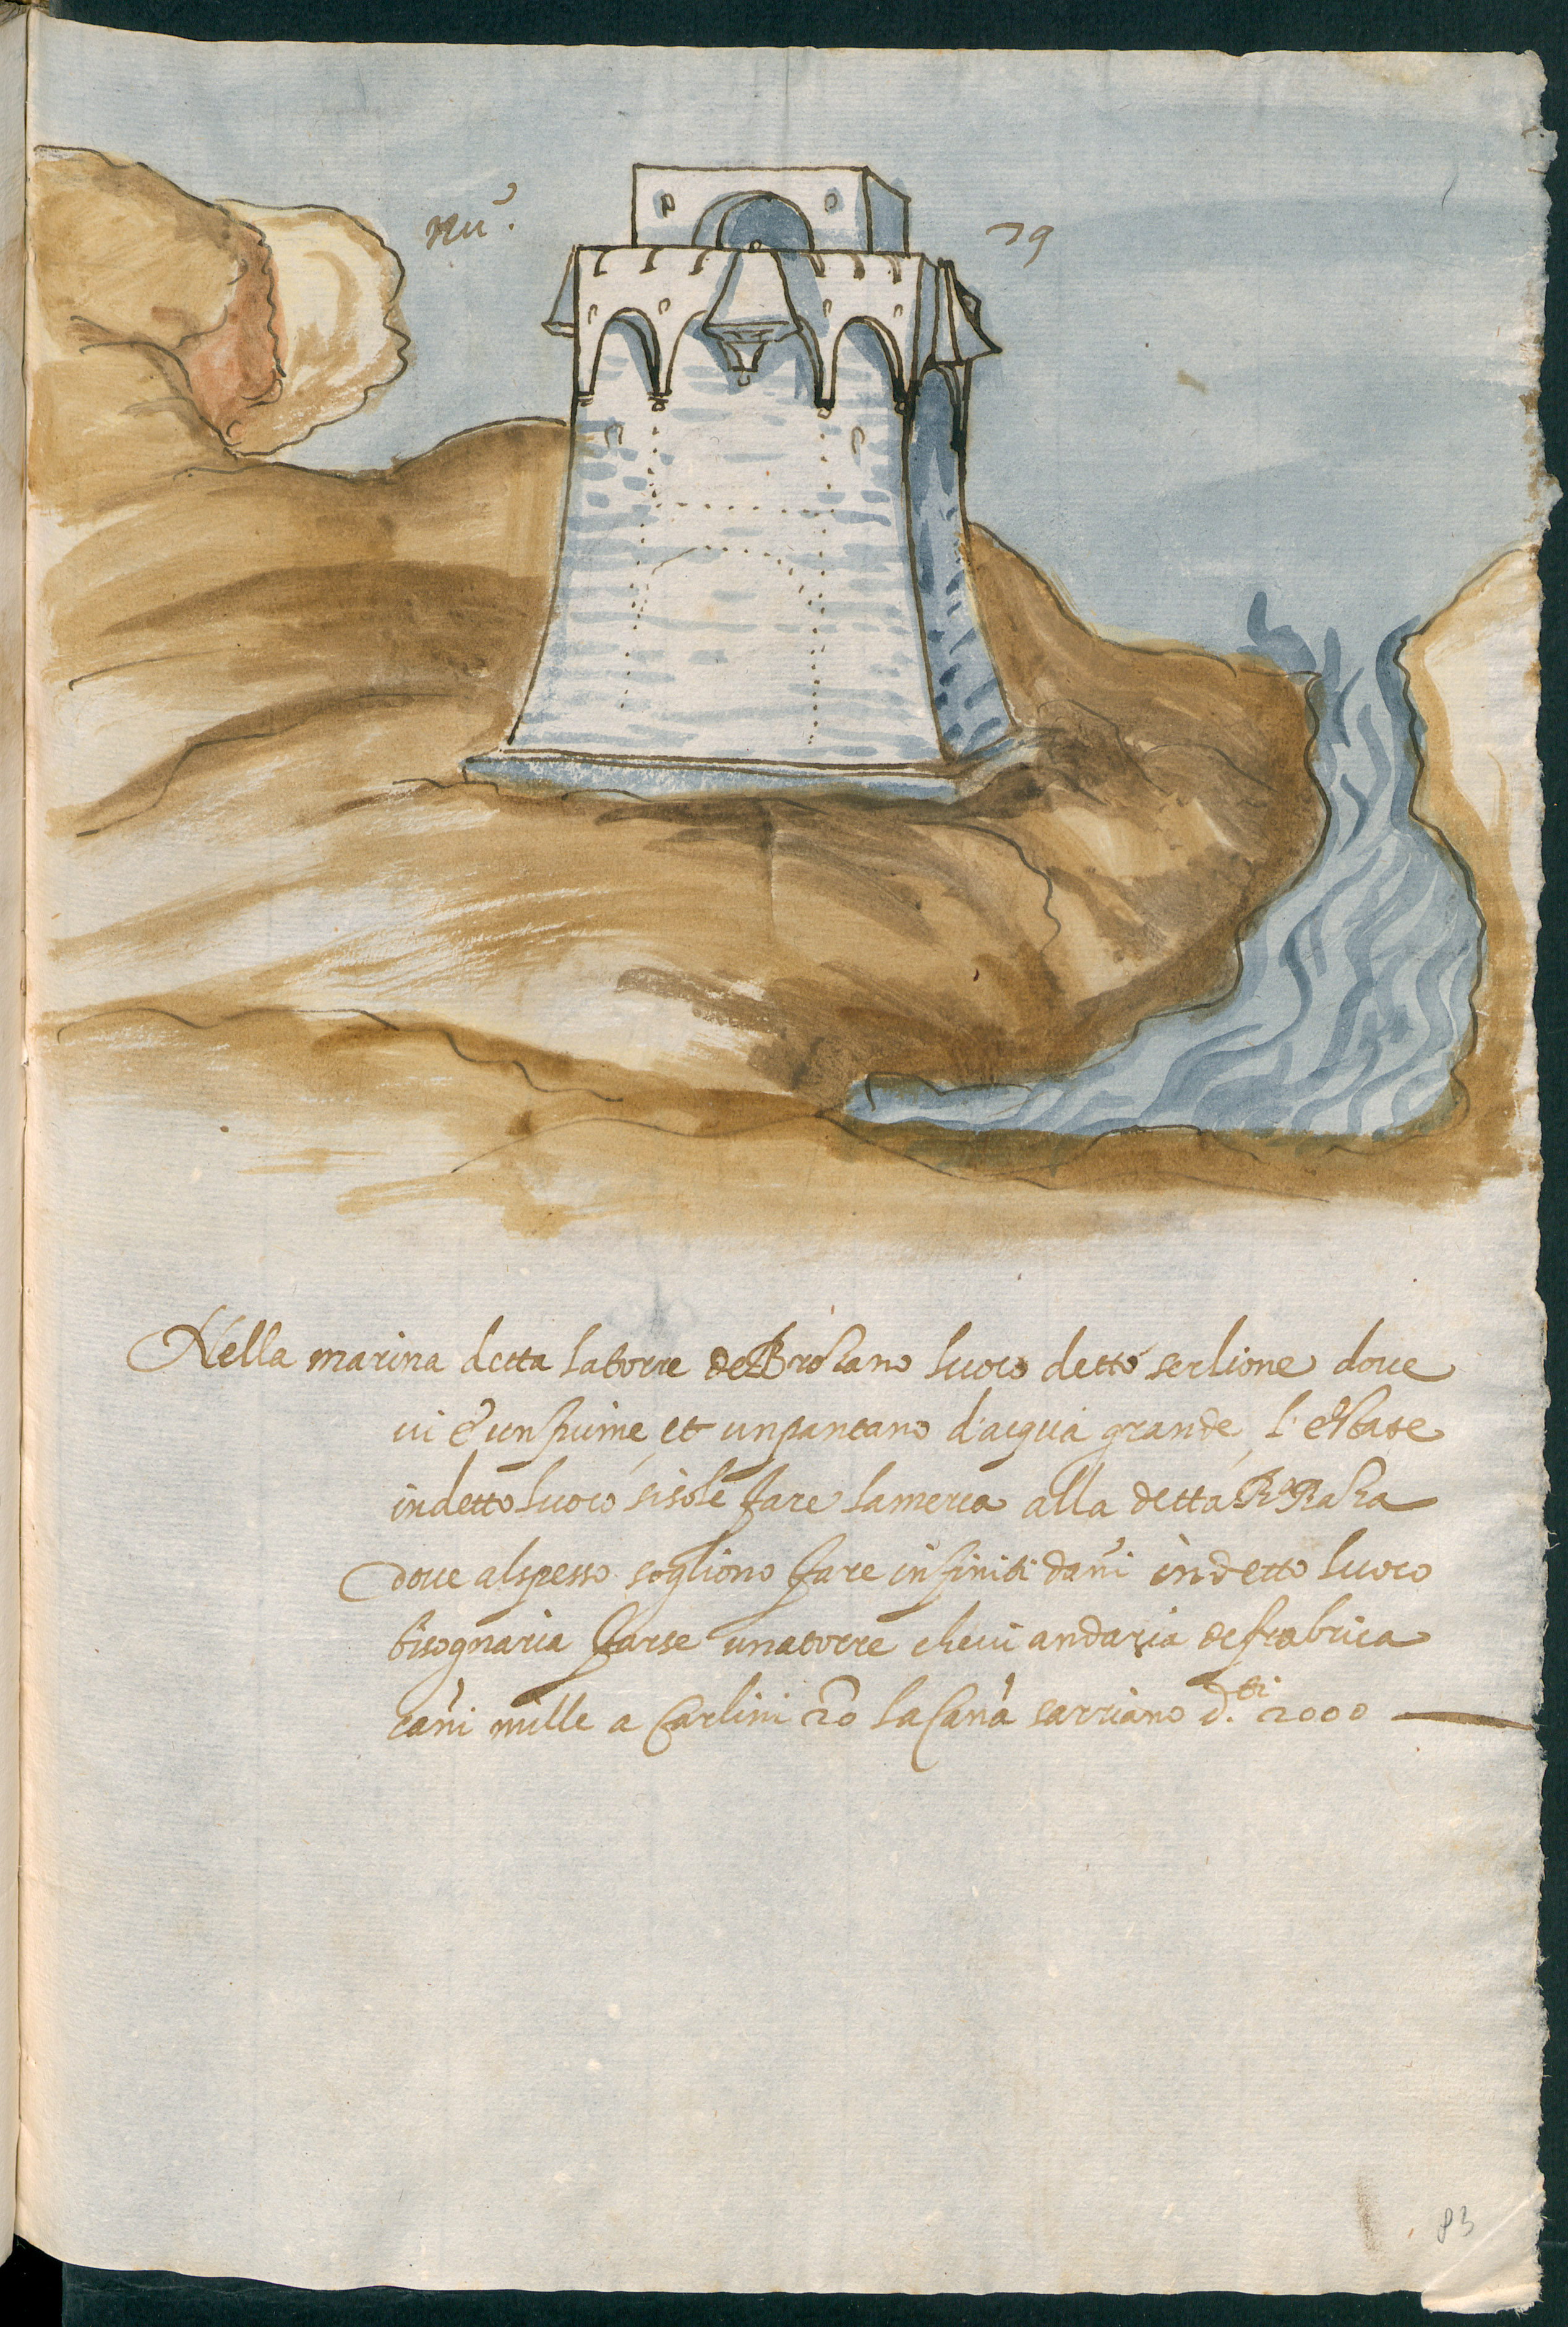 Nu.º 79
Nella marina detta la torre de Brosano luoco detto serlione dove
vi è un fiume et un pantano d'acqua grande, l'estate
in detto luoco si sole fare la merca alla detta Rª Razza
dove al spesso sogliono fare infiniti danni in detto luoco
bisognaria farse una torre che vi andaria de frabica
canni mille a Carlini 20 la Canna sarriano d.ti 2000
83